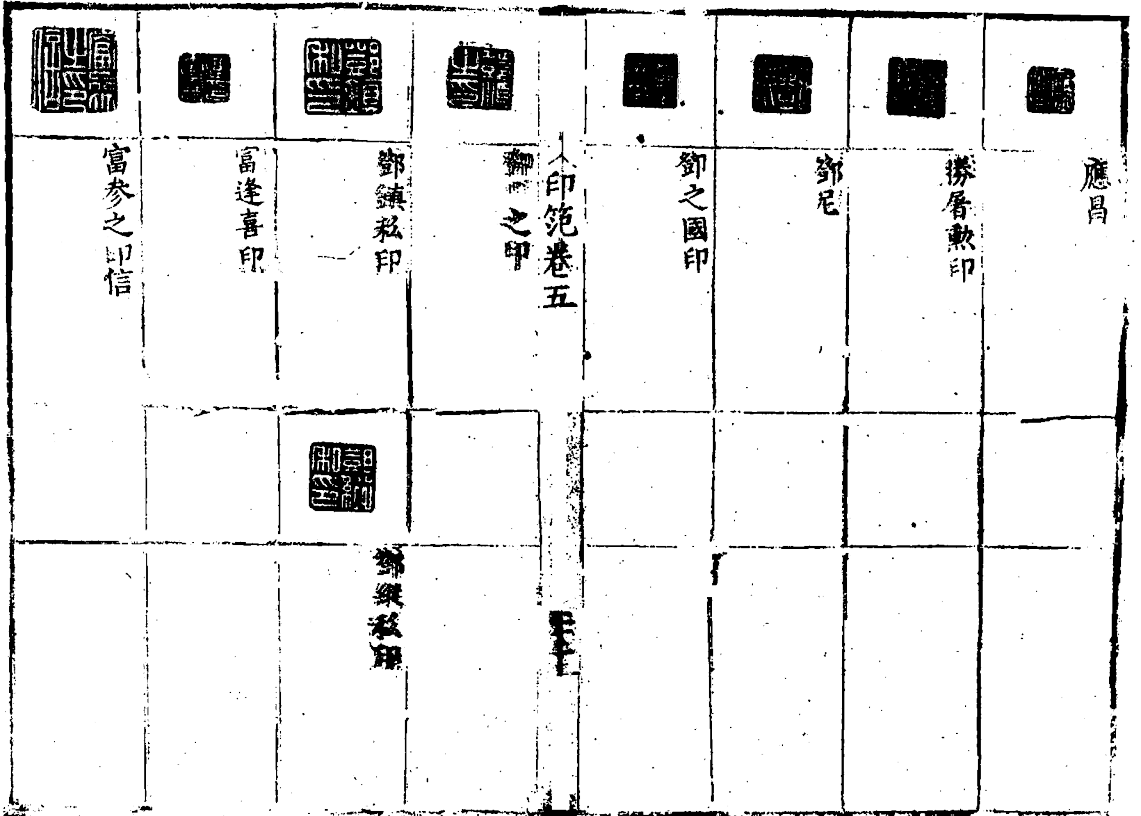 應昌
勝屠勲印
鄧尼
鄧之國印
人印范卷五
之印
鄧鎮私印
鄧縱私印
富逢喜印
富参之印信